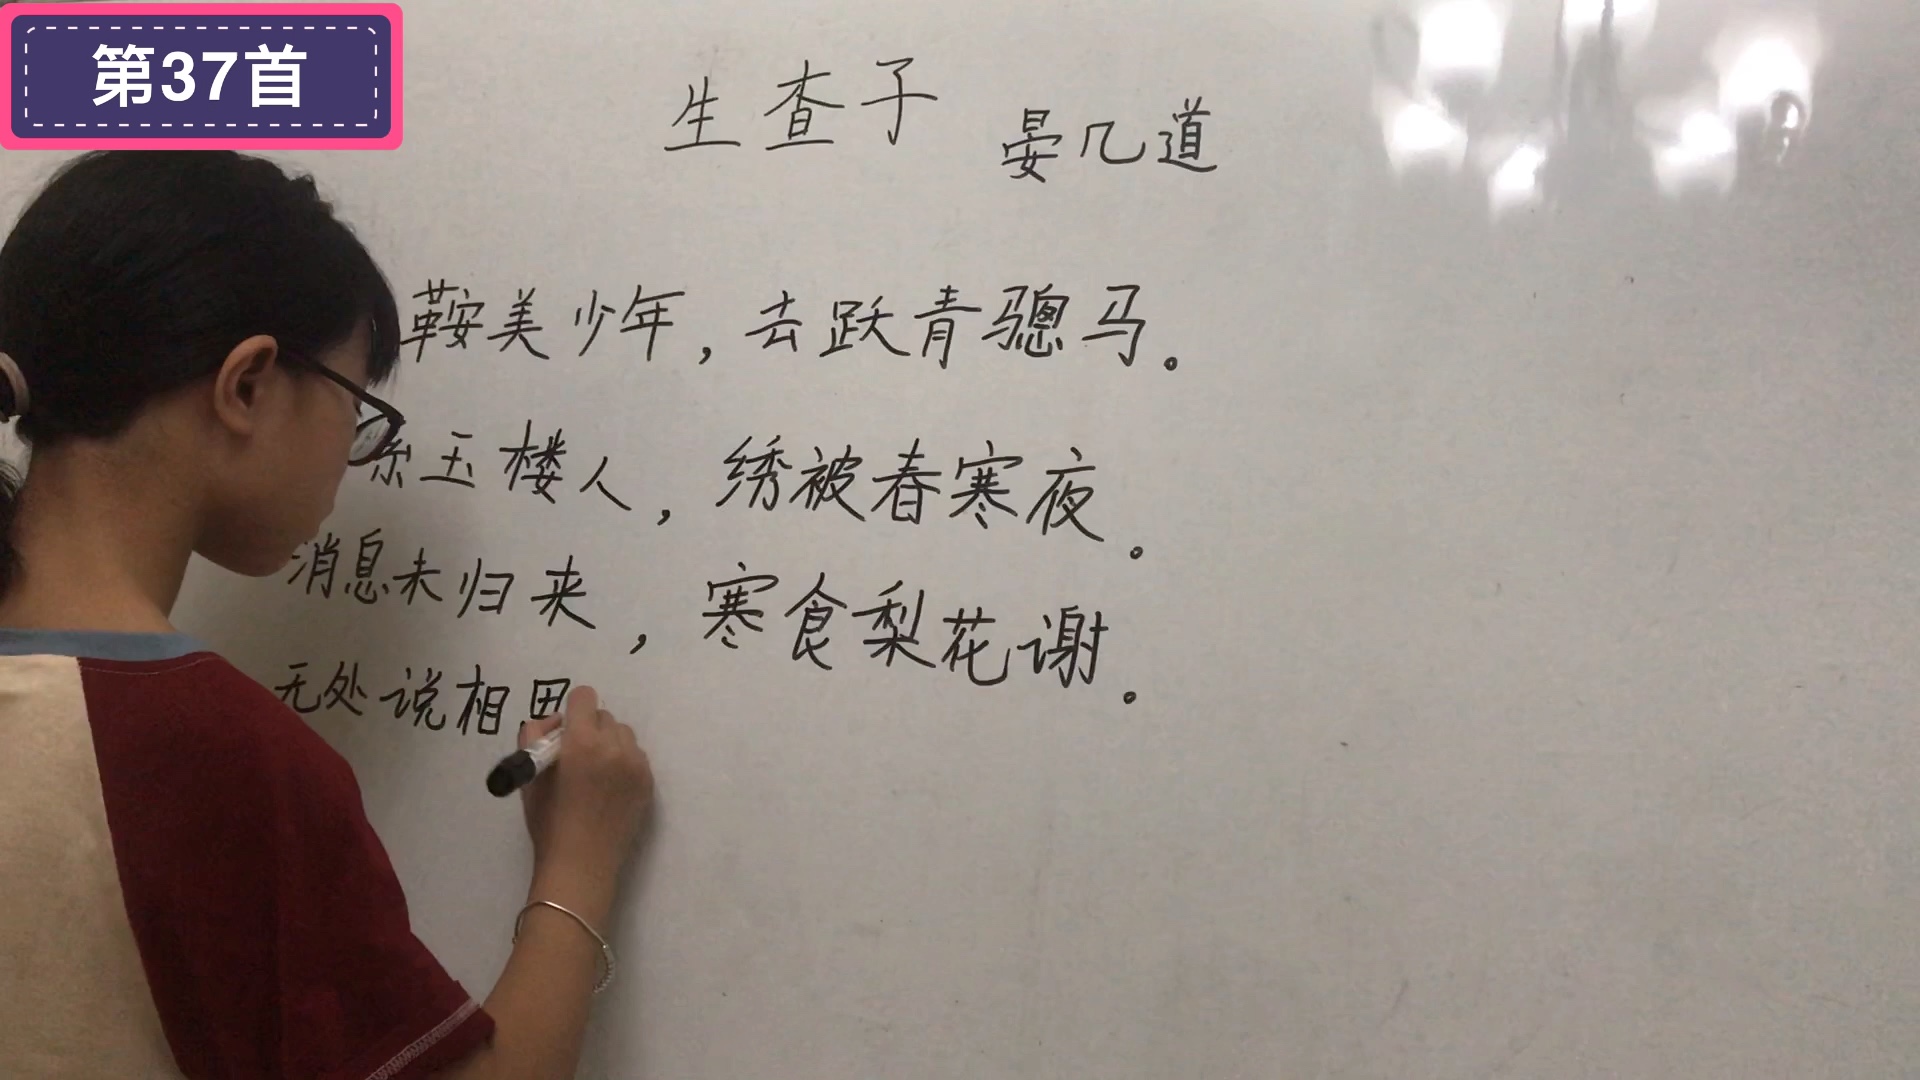 第37首
生查子
晏几道
鞍美少年，去跃青骢马。
玉楼人，绣被春寒夜。
消息未归来，寒食梨花谢。
无处说相思